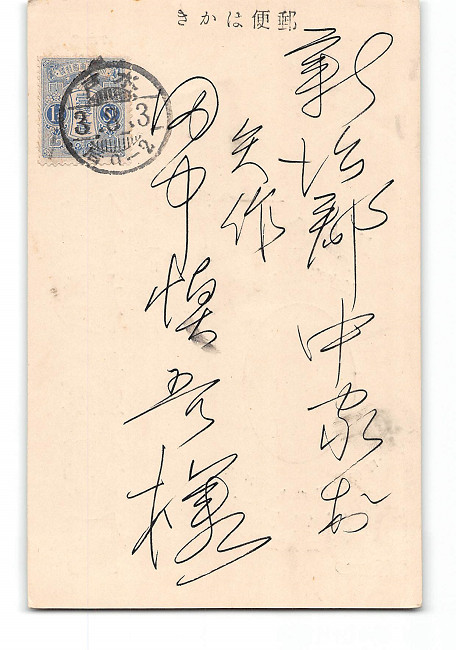 郵便はかき
新治郡中家村
矢作
田中慎吾様
3 3